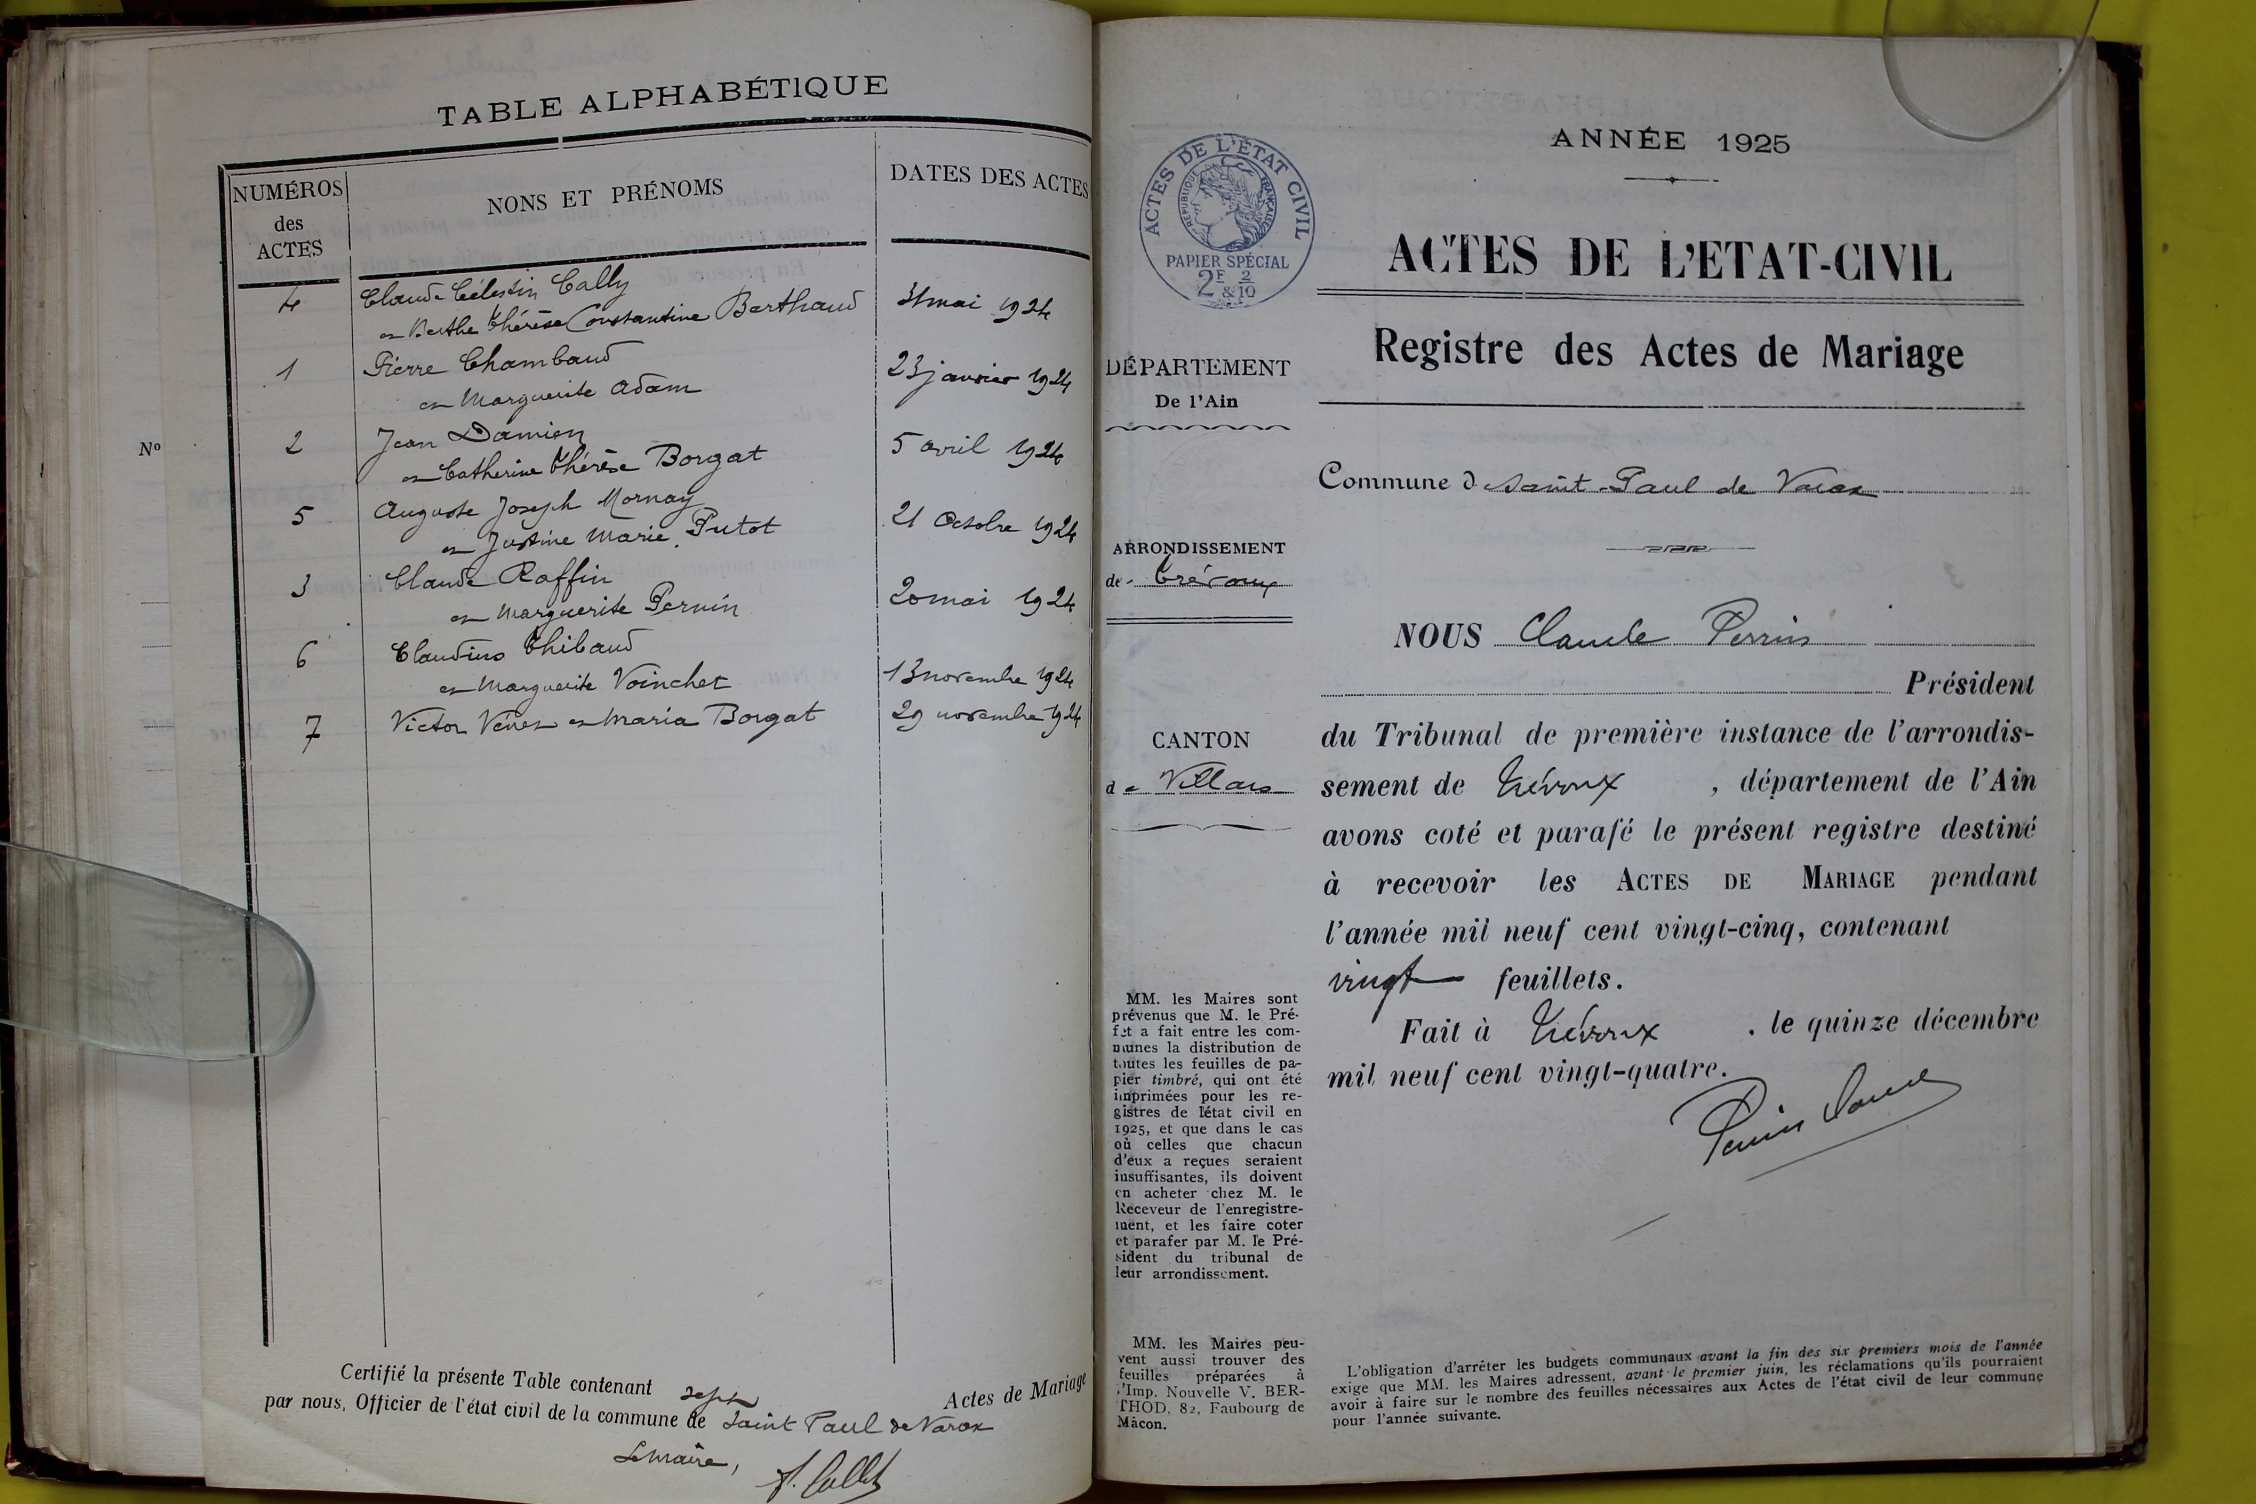 TABLE ALPHABÉTIQUE
NUMÉROS
des
ACTES
NONS ET PRÉNOMS
DATES DES ACTES
4
Claude Célestin Cally
et Berthe Thérèse Constantine Berthaud
31 mai 1924
1
Pierre Chambaud
et Marguerite Adam
23 janvier 1924
2
Jean Damien
et Catherine Thérèse Borgat
5 avril 1924
5
Auguste Joseph Mornay
et Justine Marie Putot
21 Octobre 1924
3
Claude Raffin
et Marguerite Pernin
20 mai 1924
6
Claudius Thibaud
et Marguerite Voinchet
13 novembre 1924
7
Victor et Maria Borgat
29 novembre 1924
No
Certifié la présente Table contenant sept Actes de Mariage
par nous, Officier de l'état civil de la commune de Saint Paul de Varax
Le maire,
ACTES DE L'ÉTAT CIVIL
RÉPUBLIQUE FRANÇAISE
PAPIER SPÉCIAL
2F & 2/10
DÉPARTEMENT
De l'Ain
ARRONDISSEMENT
de Trévoux
CANTON
de Villars
MM. les Maires sont
prévenus que M. le Pré-
fet a fait entre les com-
munes la distribution de
toutes les feuilles de pa-
pier timbré, qui ont été
imprimées pour les re-
gistres de l'état civil en
1925, et que dans le cas
où celles que chacun
d'eux a reçues seraient
insuffisantes, ils doivent
en acheter chez M. le
Receveur de l'enregistre-
ment, et les faire coter
et parafer par M. le Pré-
sident du tribunal de
leur arrondissement.
MM. les Maires peu-
vent aussi trouver des
feuilles préparées à
l'Imp. Nouvelle V. BER-
THOD, 82, Faubourg de
Mâcon.
ANNÉE 1925
ACTES DE L'ETAT-CIVIL
Registre des Actes de Mariage
Commune d Saint-Paul de Varax
NOUS Claude Perrin
Président
du Tribunal de première instance de l'arrondis-
sement de Trévoux, département de l'Ain
avons coté et parafé le présent registre destiné
à recevoir les ACTES DE MARIAGE pendant
l'année mil neuf cent vingt-cinq, contenant
vingt feuillets.
Fait à Trévoux, le quinze décembre
mil neuf cent vingt-quatre.
Perrin Claude
L'obligation d'arrêter les budgets communaux avant la fin des six premiers mois de l'année
exige que MM. les Maires adressent, avant le premier juin, les réclamations qu'ils pourraient
avoir à faire sur le nombre des feuilles nécessaires aux Actes de l'état civil de leur commune
pour l'année suivante.